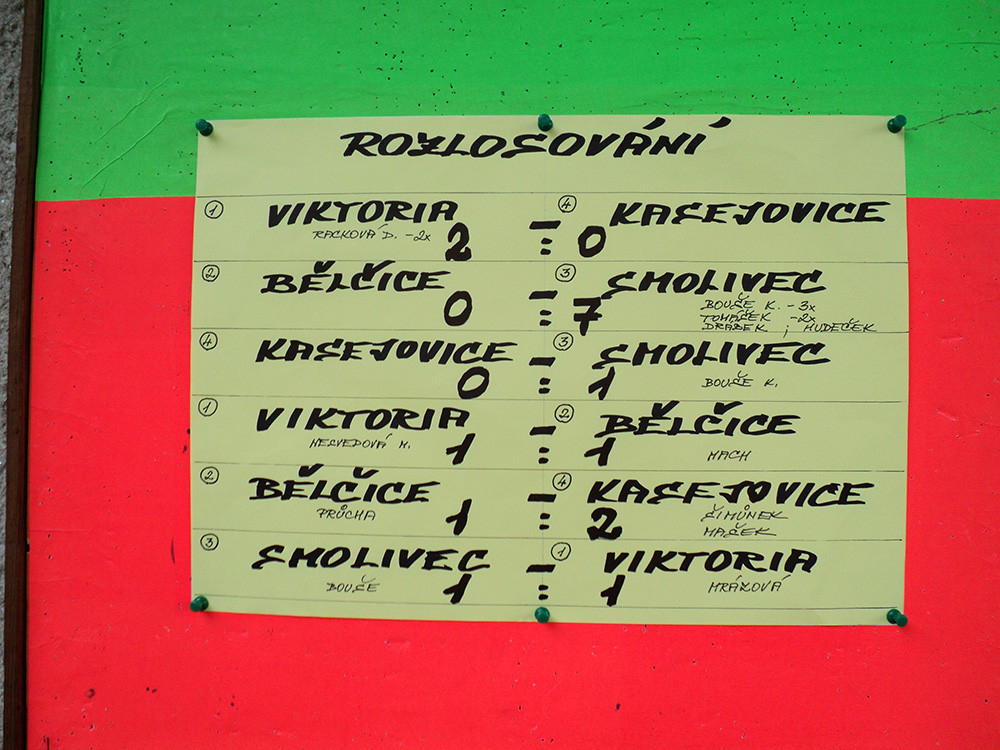 ROZLOSOVÁNÍ
① VIKTORIA - ④ KASEJOVICE
RACKOVÁ D. -2x 2 : 0
② BĚLČICE - ③ SMOLIVEC
0 : 7 BOUŠE K. -3x
TOMÁŠEK -2x
DRÁBEK ; HUDEČEK
④ KASEJOVICE - ③ SMOLIVEC
0 : 1 BOUŠE K.
① VIKTORIA - ② BĚLČICE
NESVEDOVÁ M. 1 : 1 MACH
② BĚLČICE - ④ KASEJOVICE
PRŮCHA 1 : 2 ŠIMŮNEK
MAŠEK
③ SMOLIVEC - ① VIKTORIA
BOUŠE 1 : 1 MRÁZOVÁ